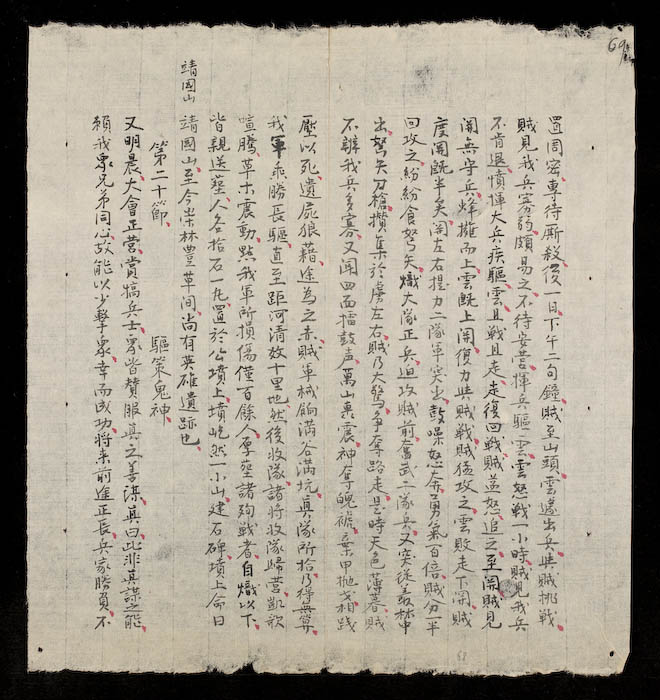 69
置周密、專待廝殺後一日下午二句鐘賊至山頭雲遂出兵與賊挑戰
賊見我兵寡弱頗易之不待安營揮兵驅雲、雲怒戰一小時賊見我兵
不肯退憤揮大兵疾驅雲且戰且走、走復回戰賊益怒追之、至開賊見
開無守兵烽擁而上雲旣上開復力與賊戰賊猛攻之雲敗走下開賊
度開旣半矣開左右提力二隊軍突出鼓噪怒奔勇氣百倍賊分一半
回攻之紛紛食弩矢熾大隊正兵迫攻賊前奮武二隊兵又突從叢林中
出弩矢刀槍攢集於虜左右賊乃大驚爭奪路走是時天色薄暮賊
不辨我兵多寡又聞四面擂鼓声萬山裏震神奪魄褫棄甲抛戈相踐
壓以死遺屍狼藉途為之赤賊軍械餉滿谷滿坑眞隊所拾乃得無算
我軍乘勝長驅直至距河清故十里地然後收隊諸將收隊歸营凱歌
喧騰草木震動點我軍所損傷僅百餘人厚塟諸殉戰者自熾以下
皆親送塟人各拾石一丸置於公墳上墳屹然一小山建石碑墳上命曰
靖國山 靖國山、至今崇林豊草间尚有英雄遺跡也
第二十節 驅策鬼神
又明晨大會正营賞犒兵士衆皆賛服眞之善謀眞曰此非眞謀之能
賴我衆兄弟同心故能以少擊衆幸而成功將来前途正長兵家勝負不